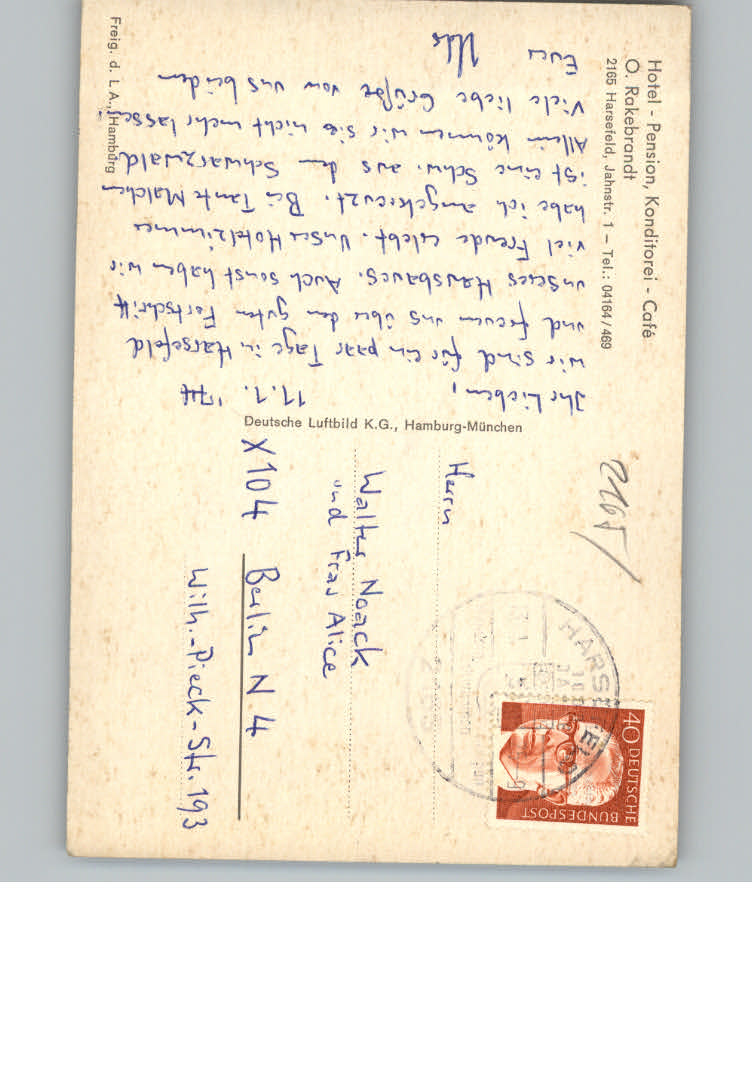 Hotel - Pension, Konditorei - Café
O. Rakebrandt
2165 Harsefeld, Jahnstr. 1 – Tel.: 04164/469
11.1.'74
Ihr Lieben,
wir sind für ein paar Tage in Harsefeld
und freuen uns über den guten Fortschritt
unseres Hausbaues. Auch sonst haben wir
viel Freude erlebt. Unser Hotelzimmer
habe ich angekreuzt. Bei Tante Malchen
ist eine Schw. aus dem Schwarzwald.
Allein können wir sie nicht mehr lassen.
Viele liebe Grüße von uns beiden
Euer
Freig. d. L A., Hamburg
Deutsche Luftbild K.G., Hamburg-München
2165
HARSEFELD
2165
40 DEUTSCHE
BUNDESPOST
Herrn
Walter Noack
und Frau Alice
X104 Berlin N 4
Wilh.-Pieck-Str. 193